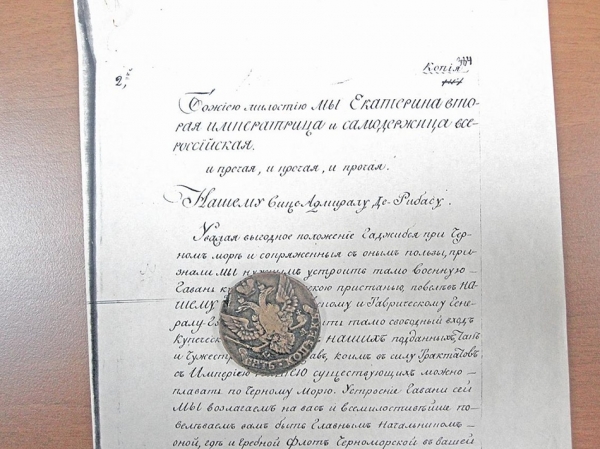 Копія 304
2,
Божіею милостію МЫ Екатерина вто-
рая императрица и самодержица все-
россійская.
и прочая, и прочая, и прочая.
Нашему Вице Адмиралу Де-Рибасу.
Уважая выгодное положеніе Гаджибея при Чер-
номъ морѣ и сопряженныя съ онымъ пользы, при-
знали МЫ нужнымъ устроить тамо военную
Гавань ... пристанью, повелѣвъ НА-
ШЕМУ ... и Таврическому Гене-
ралу ... тамо свободный входъ
Купечес... НАШИХЪ подданныхъ, такъ
и Чужестр... коимъ въ силу Трактатовъ
съ Имперіею НАШЕЮ существующихъ можно
плавать по Черному Морю. Устроеніе Гавани сей
МЫ возлагаемъ на васъ и Всемилостивѣйше по-
велѣваемъ вамъ быть Главнымъ Начальникомъ
оной, гдѣ и Гребной Флотъ Черноморской въ вашей
ПЯТЬ КОПѢЕКЪ